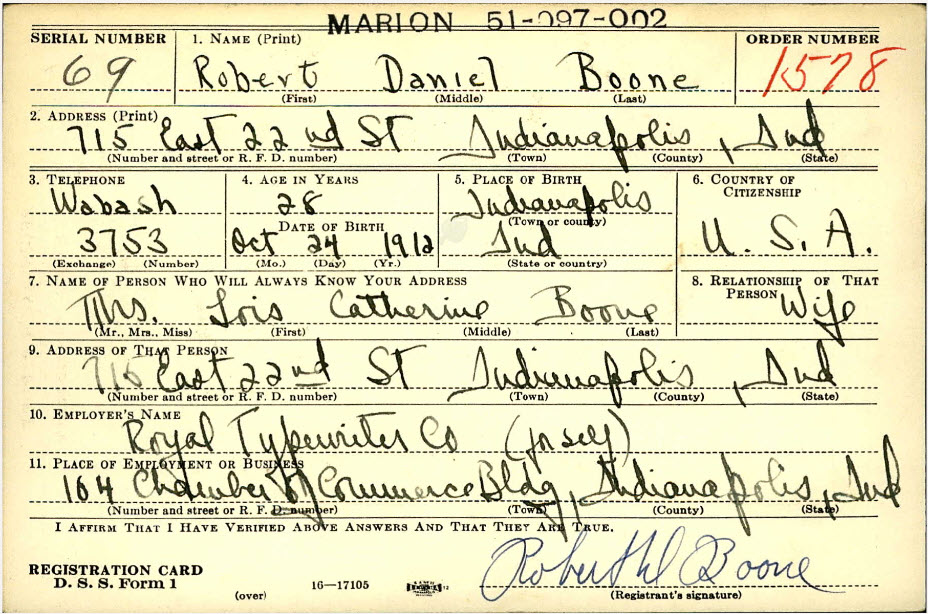 MARION 51-097-002
SERIAL NUMBER 1. NAME (Print) ORDER NUMBER
69 Robert Daniel Boone 1578
(First) (Middle) (Last)
2. ADDRESS (Print)
715 East 22nd St Indianapolis, Ind
(Number and street or R. F. D. number) (Town) (County) (State)
3. TELEPHONE 4. AGE IN YEARS 5. PLACE OF BIRTH 6. COUNTRY OF CITIZENSHIP
Wabash 28 Indianapolis
DATE OF BIRTH (Town or county)
3753 Oct 24 1912 Ind U. S. A.
(Exchange) (Number) (Mo.) (Day) (Yr.) (State or country)
7. NAME OF PERSON WHO WILL ALWAYS KNOW YOUR ADDRESS 8. RELATIONSHIP OF THAT PERSON
Mrs. Lois Catherine Boone Wife
(Mr., Mrs., Miss) (First) (Middle) (Last)
9. ADDRESS OF THAT PERSON
715 East 22nd St Indianapolis, Ind
(Number and street or R. F. D. number) (Town) (County) (State)
10. EMPLOYER'S NAME
Royal Typewriter Co (for self)
11. PLACE OF EMPLOYMENT OR BUSINESS
104 Chamber of Commerce Bldg, Indianapolis, Ind
(Number and street or R. F. D. number) (Town) (County) (State)
I AFFIRM THAT I HAVE VERIFIED ABOVE ANSWERS AND THAT THEY ARE TRUE.
Robert D Boone
REGISTRATION CARD
D. S. S. Form 1 (over) 16—17105 (Registrant's signature)